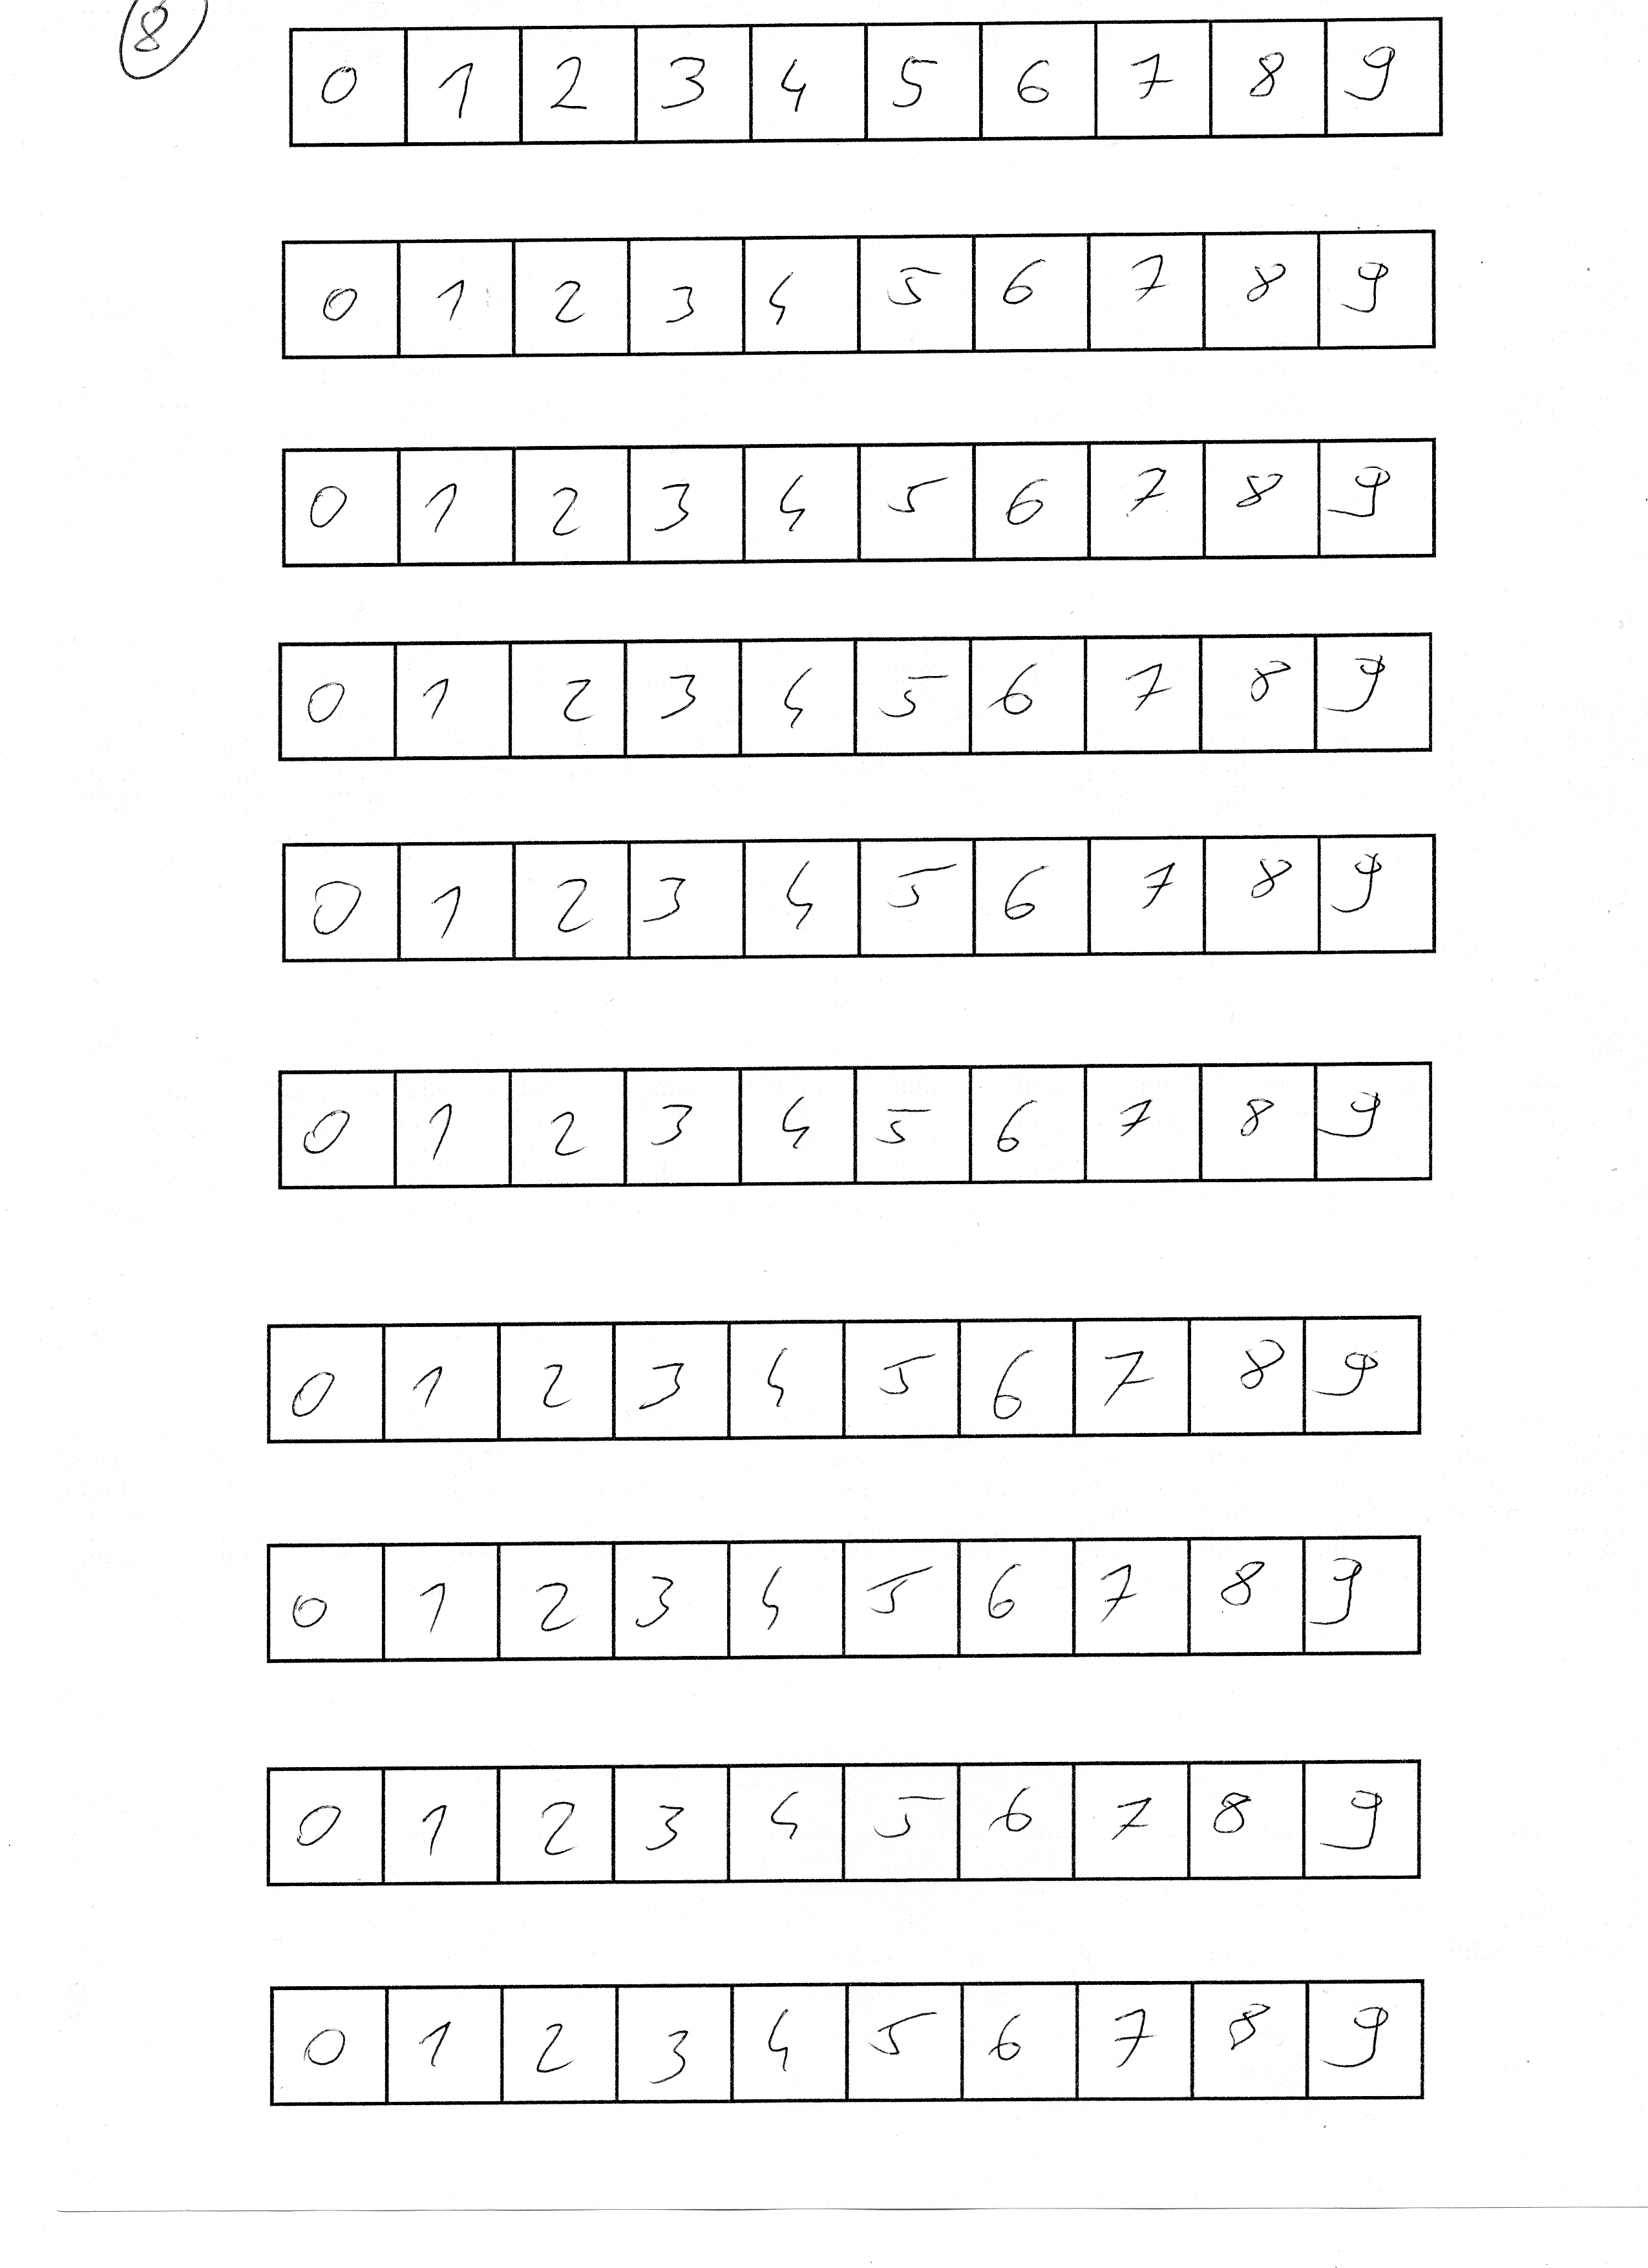 8
0 1 2 3 4 5 6 7 8 9
0 1 2 3 4 5 6 7 8 9
0 1 2 3 4 5 6 7 8 9
0 1 2 3 4 5 6 7 8 9
0 1 2 3 4 5 6 7 8 9
0 1 2 3 4 5 6 7 8 9
0 1 2 3 4 5 6 7 8 9
0 1 2 3 4 5 6 7 8 9
0 1 2 3 4 5 6 7 8 9
0 1 2 3 4 5 6 7 8 9